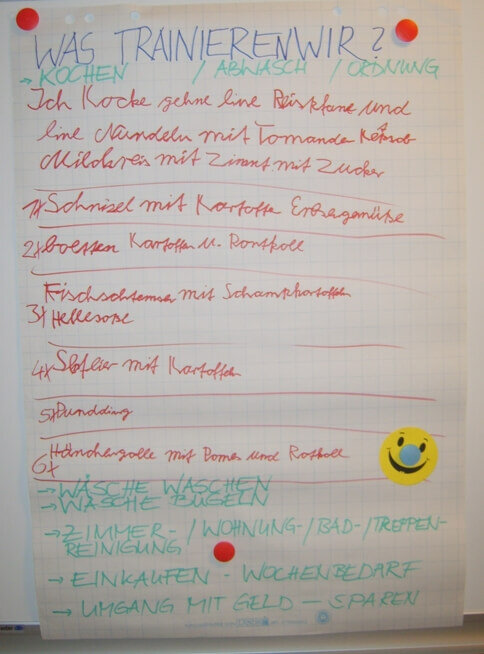 WAS TRAINIEREN WIR?
→ KOCHEN / ABWASCH / ORDNUNG
Ich Kocke gehne eine Reiskfane und
eine Nundeln mit Tomanden Ketsob
Mildkreis mit Zimmt mit Zucker
1x Schnisel mit Kartoffn Erbsegemüße
2x Kartoffen u. Rontkoll
Fischschtemser mit Schampkartoffeln
3x Hellesoße
4x mit Kartoffeln
5x Pundding
6x Hänchengolle mit Pomes und Rotkoll
→ WÄSCHE WASCHEN
→ WÄSCHE BÜGELN
→ ZIMMER- / WOHNUNG- / BAD- / TREPPEN-
REINIGUNG
→ EINKAUFEN - WOCHENBEDARF
→ UMGANG MIT GELD — SPAREN